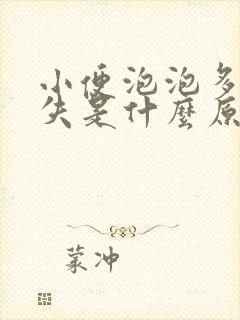 小便泡泡多
失是什麼原
蒙冲